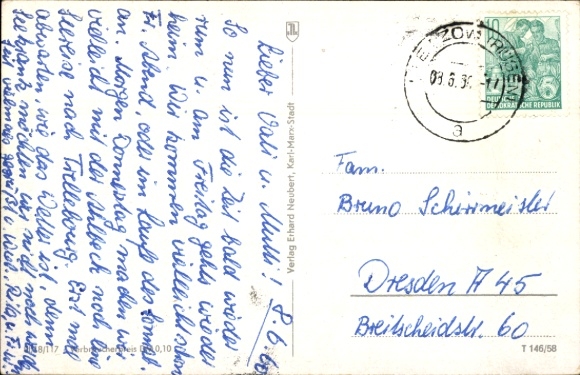 Lieber Vati u. Mutti! 8.6.60
So nun ist die Zeit bald wieder
rum u. am Freitag gehts wieder
heim. Wir kommen vielleicht schon
Fr. Abend, oder im Laufe des Sonnab.
an. Morgen Donnerstag machen wir
vielleicht mit der Saßnitz noch eine
Seereise nach Trelleborg. Erst mal
abwarten, wie das Wetter ist denn
seekrank möchten wir nicht noch werden
Verlag Erhard Neubert, Karl-Marx-Stadt
Verbraucherpreis DM 0,10
10
DEUTSCHE
DEMOKRATISCHE REPUBLIK
a
Fam.
Bruno Schirrmeister
Dresden A 45
Breitscheidstr. 60
T 146/58